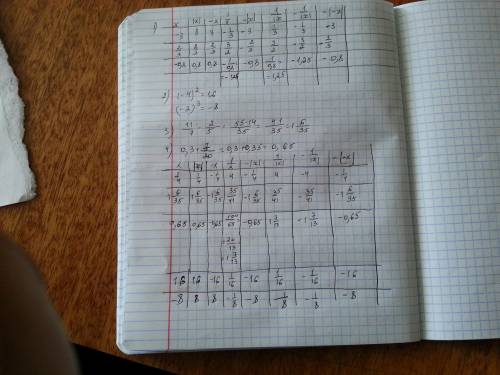 1) x | |x| | -x | 1/x | -|x| | 1/|x| | -1/|x| | -|-x|
-3 | 3 | 3 | -1/3 | -3 | 1/3 | -1/3 | +3
-0,8 | 0,8 | 0,8 | -0,8 | -1,25 | -0,8
=-1,25 =1,25
2) (-4)² = 16
(-2)³ = -8
3) 11/7 - 2/5 = 55-14/35 = 41/35 = 1 6/35
4) 0,3+7/20 = 0,3+0,35= 0,65
x | |x| | -x | 1/x | -|x| | 1/|x| | -1/|x| | -|-x|
1/4 | 1/4 | -1/4 | 4 | -1/4 | 4 | -4 | -1/4
1 6/35 | 1 6/35 | -1 6/35 | 35/41 | -1 6/35 | 35/41 | -35/41 | -1 6/35
0,65 | 0,65 | -0,65 | 100/65 | -0,65 | 1 7/13 | -1 7/13 | -0,65
=20/13
=1 7/13
16 | 16 | -16 | 1/16 | -16 | 1/16 | -1/16 | -16
-8 | 8 | 8 | -1/8 | -8 | 1/8 | -1/8 | -8